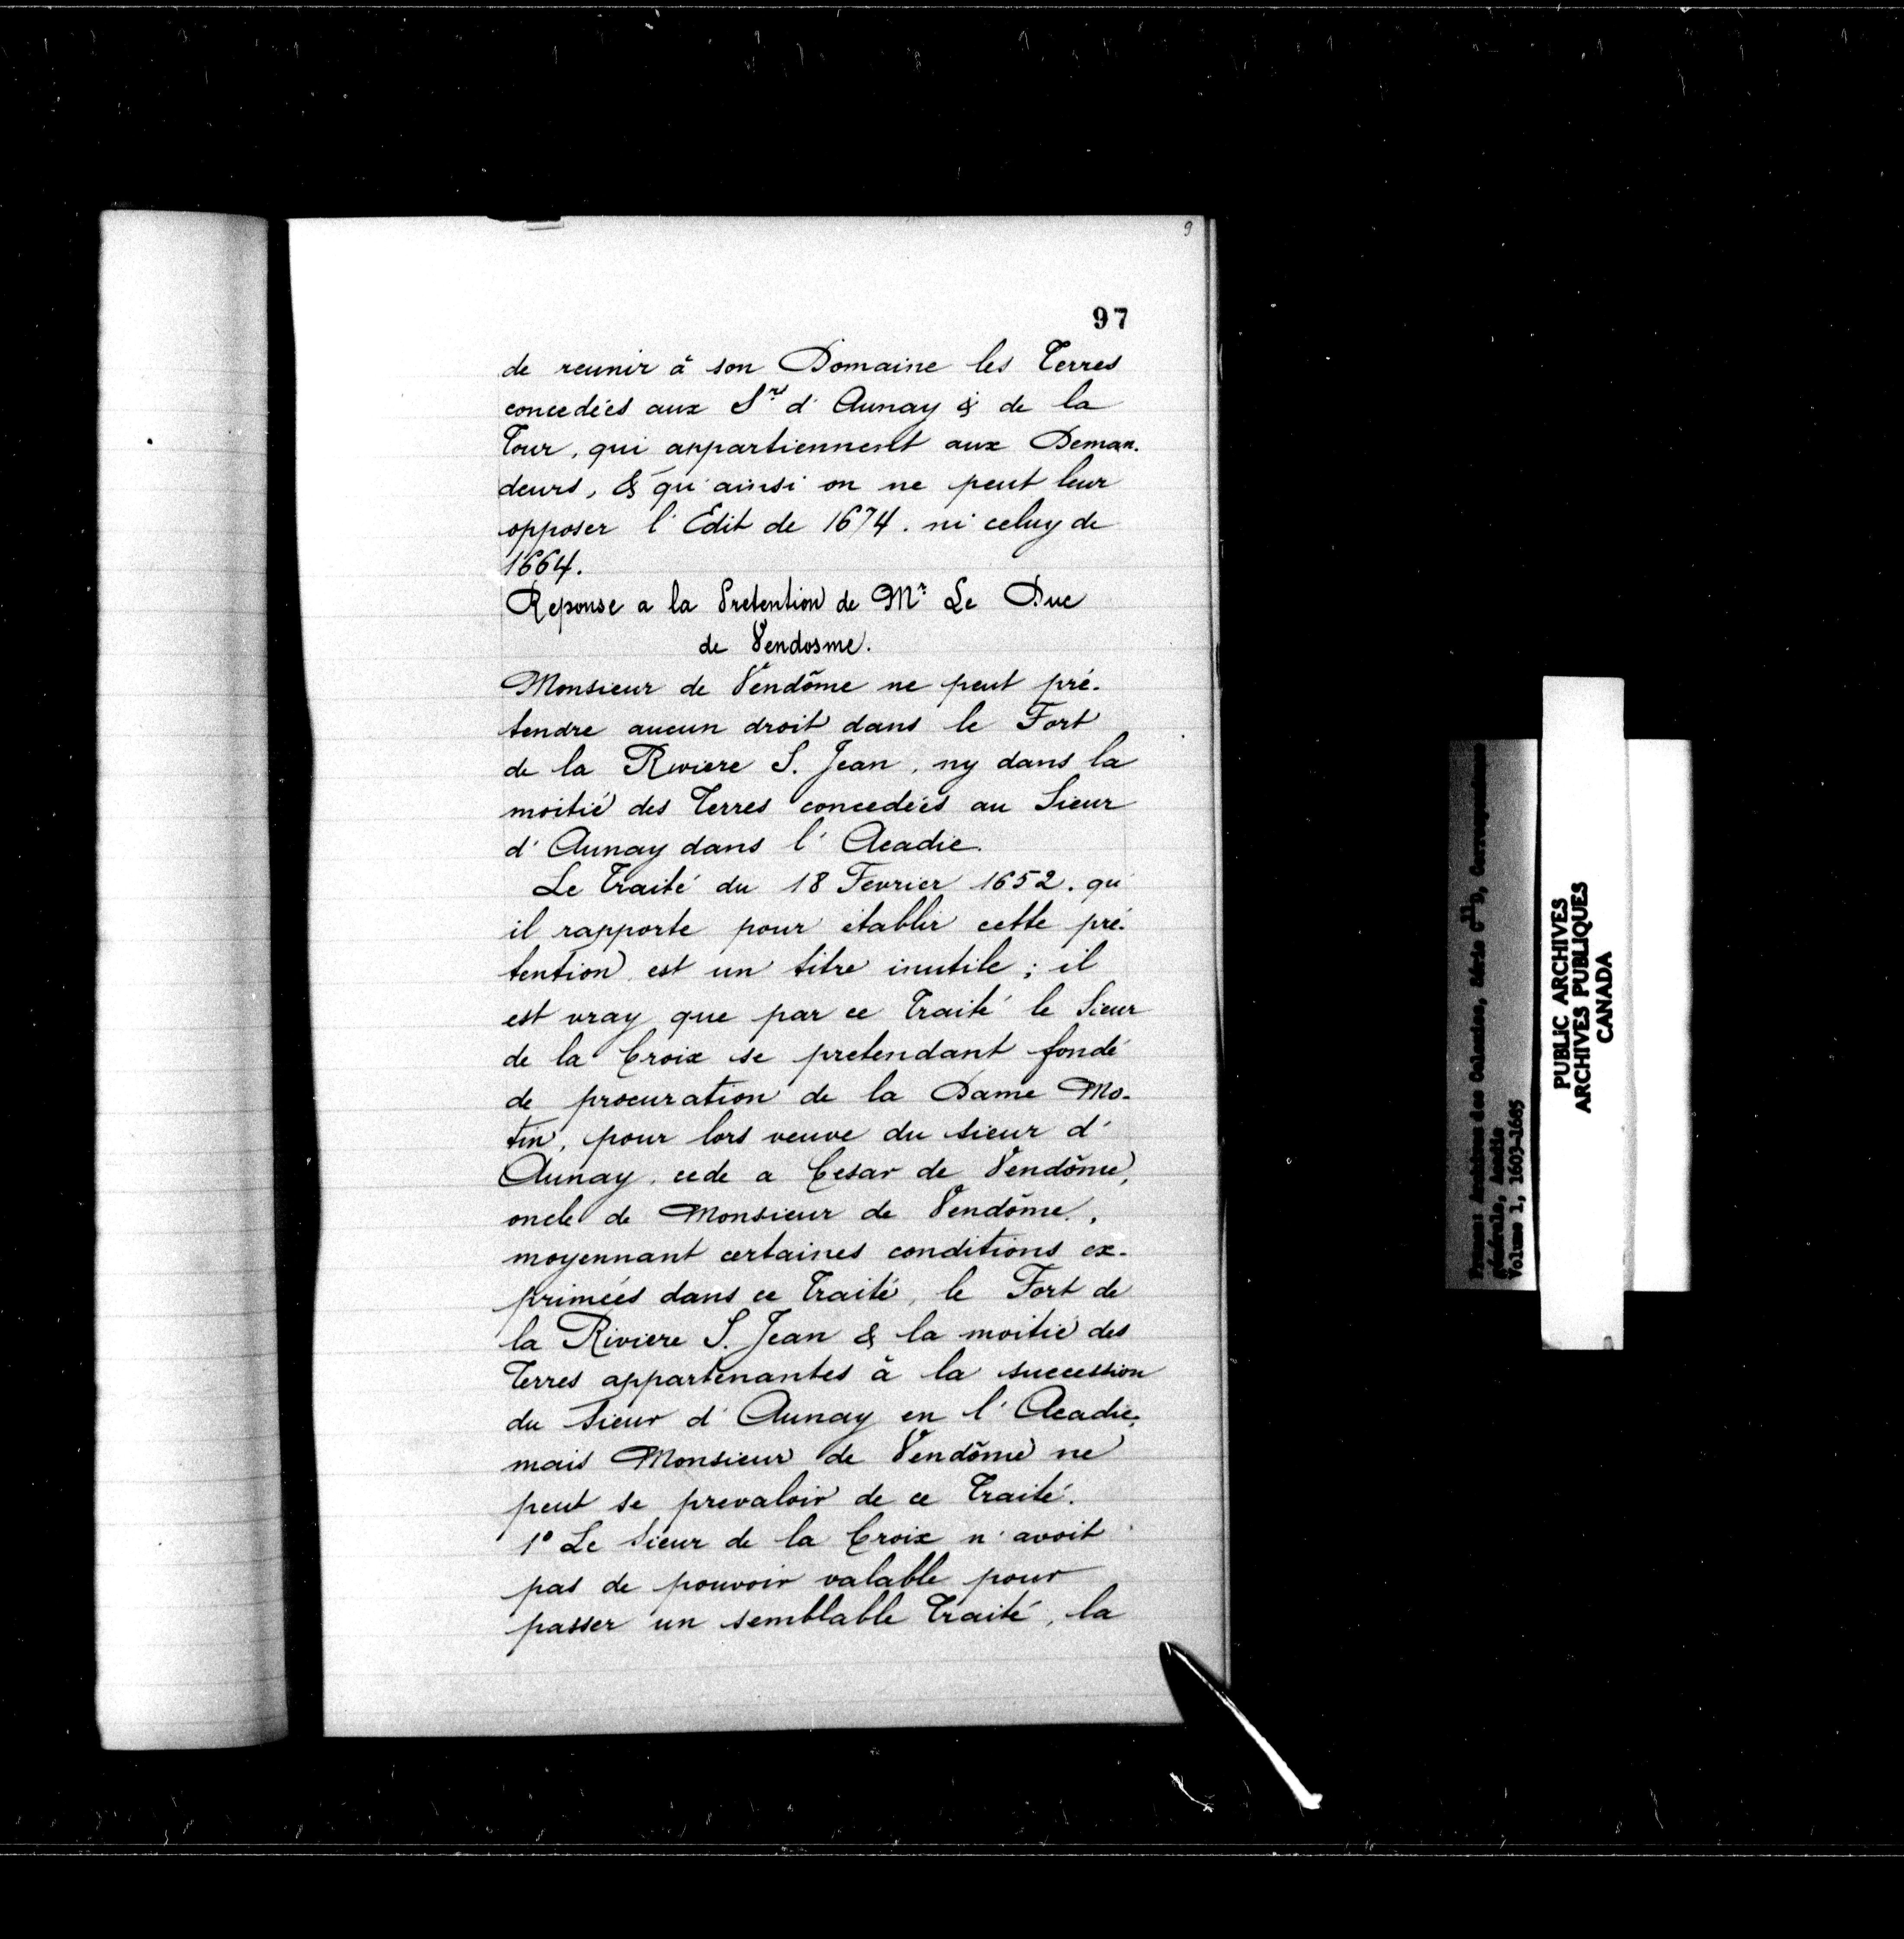 9
97
de reunir à son Domaine les Terres
concedées aux Srs d'Aunay & de la
Tour, qui appartiennent aux Deman-
deurs, & qu'ainsi on ne peut leur
opposer l'Edit de 1674. ni celuy de
1664.
Reponse a la Pretention de Mr Le Duc
de Vendosme.
Monsieur de Vendôme ne peut pré-
tendre aucun droit dans le Fort
de la Riviere S. Jean, ny dans la
moitié des Terres concedées au Sieur
d'Aunay dans l'Acadie.
Le Traité du 18 Fevrier 1652. qu'
il rapporte pour établir cette pré-
tention est un titre inutile; il
est vray que par ce Traité le Sieur
de la Croix se pretendant fondé
de procuration de la Dame Mo-
tin, pour lors veuve du sieur d'
Aunay, cede a Cesar de Vendôme,
oncle de Monsieur de Vendôme,
moyennant certaines conditions ex-
primées dans ce Traité, le Fort de
la Riviere S. Jean & la moitié des
Terres appartenantes à la succession
du Sieur d'Aunay en l'Acadie,
mais Monsieur de Vendôme ne
peut se prevaloir de ce Traité.
1° Le Sieur de la Croix n'avoit
pas de pouvoir valable pour
passer un semblable Traité, la
France: Archives des Colonies, Série C11D, Correspondance
générale, Acadie
Volume 1, 1603-1685
PUBLIC ARCHIVES
ARCHIVES PUBLIQUES
CANADA